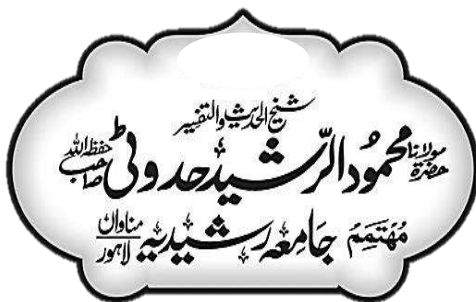 شیخ الحدیث والتفسیر
حضرۃ مولانا محمود الرّشید حدوٹی صاحب حفظہ اللہ
مُہتمم جامعہ رشیدیہ مناواں لاہور